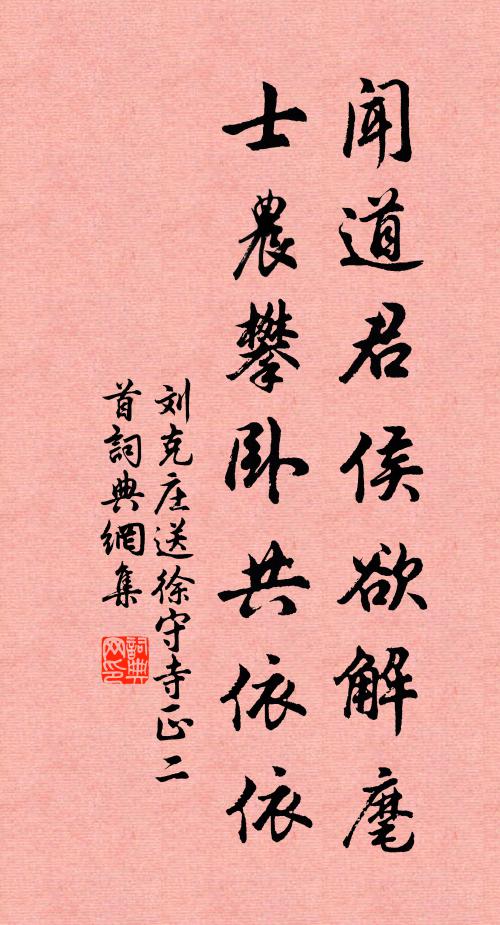 闻道君侯欲解麾
士農攀卧共依依
刘克庄送徐守寺正二
首詞典網集
詞典網印